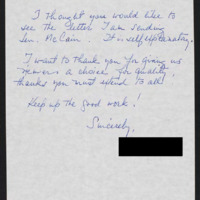 I thought you would like to
see the letter I am sending
Sen. McCain. It is self explanatory.
I want to thank you for giving us
movers a choice for quality,
thanks you must extend to all!
Keep up the good work!
Sincerely,